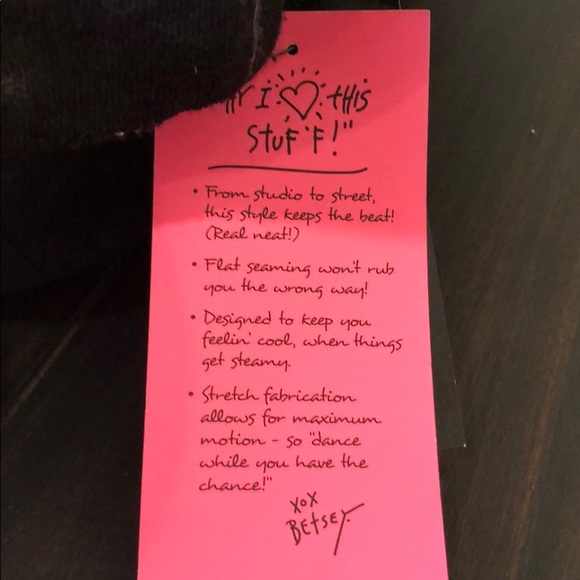 I ♡ this
stuff!"
• From studio to street,
this style keeps the beat!
(Real neat!)
• Flat seaming won't rub
you the wrong way!
• Designed to keep you
feelin' cool, when things
get steamy.
• Stretch fabrication
allows for maximum
motion - so "dance
while you have the
chance!"
xox
Betsey